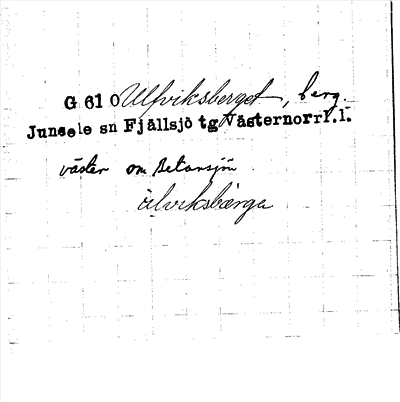 G 61 O Ulfviksberget, berg.
Junsele sn Fjällsjö tg Västernorrl.l.
väster om Betarsjön
ulviksbärge